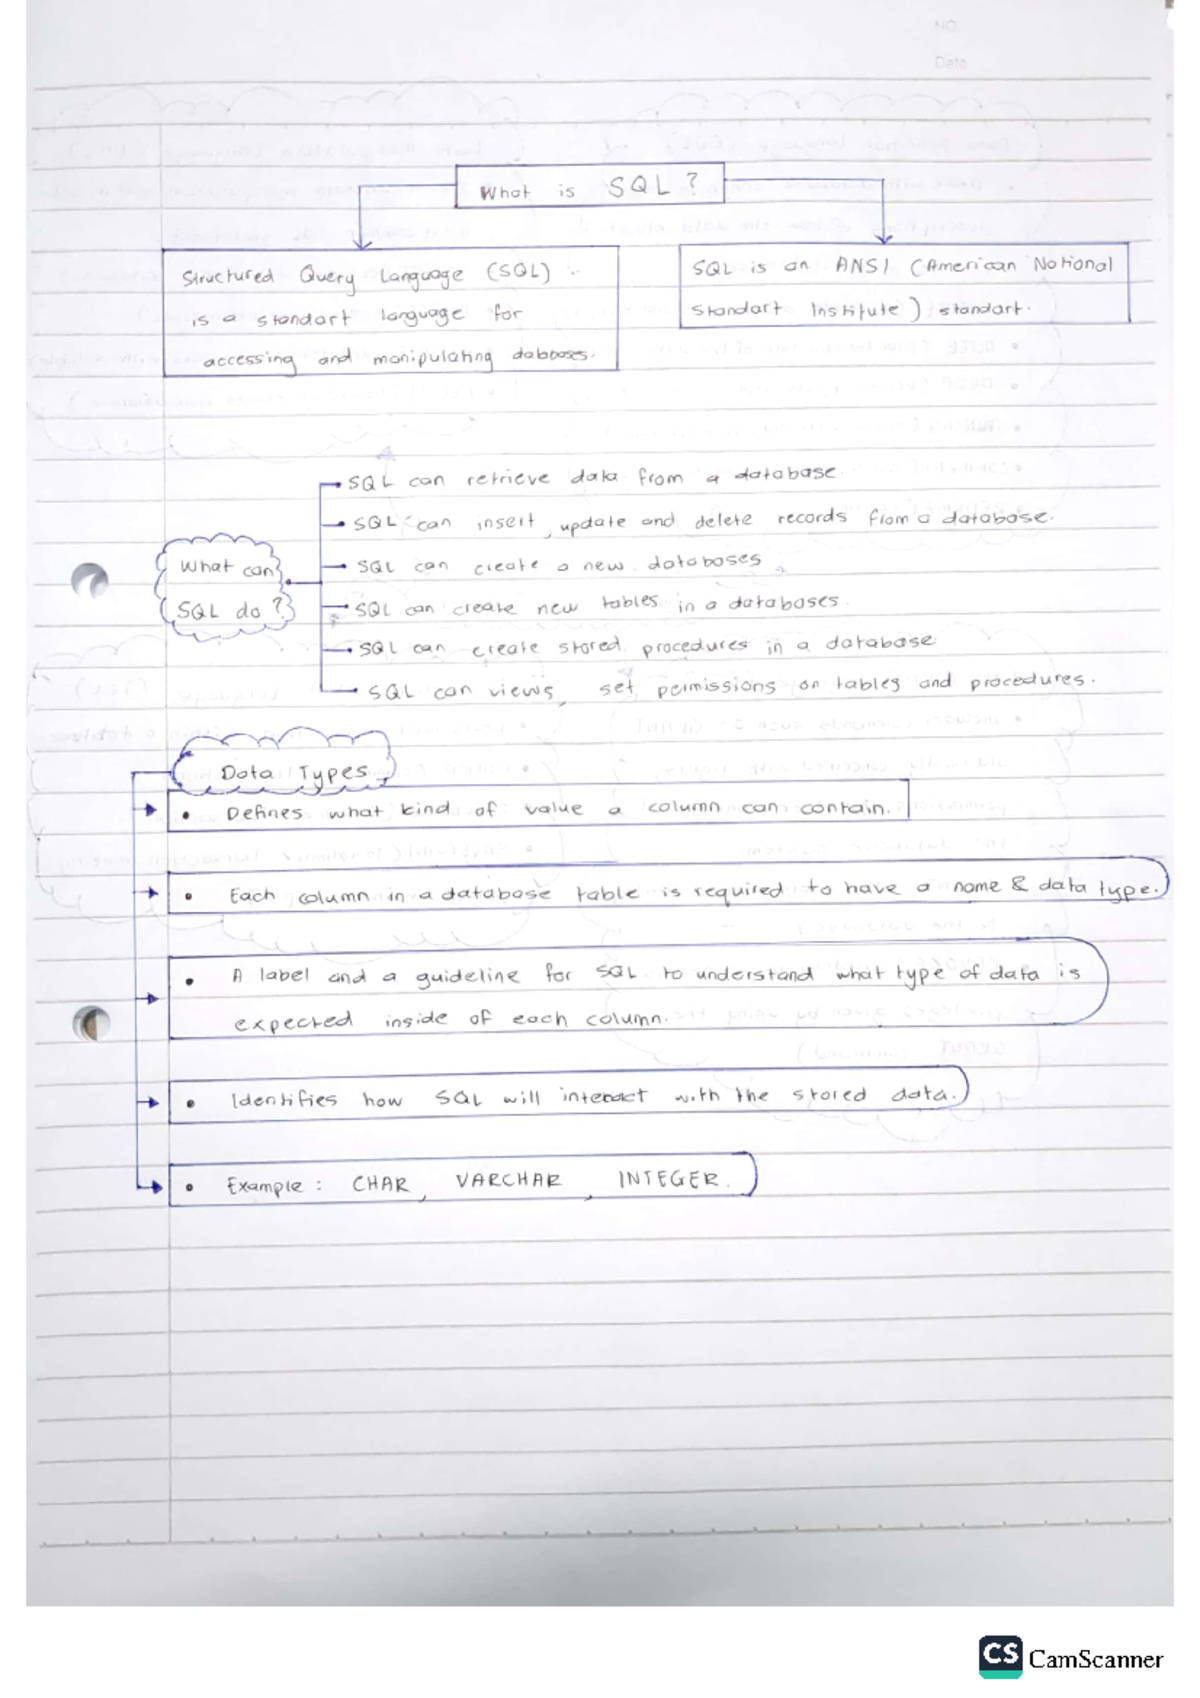 NO
Date
What is SQL?
Structured Query Language (SQL)
is a standart language for
accessing and manipulating dabases.
SQL is an ANSI (American National
Standart Institute) standart.
What can
SQL do?
SQL can retrieve data from a database.
SQL can insert, update and delete records from a database.
SQL can create a new databases
SQL can create new tables in a databases.
SQL can create stored procedures in a database
SQL can views, set permissions on tables and procedures.
Data Types
• Defines what kind of value a column can contain.
• Each column in a database table is required to have a name & data type.
• A label and a guideline for SQL to understand what type of data is
expected inside of each column.
• Identifies how SQL will interact with the stored data.
• Example: CHAR, VARCHAR, INTEGER.
CS CamScanner